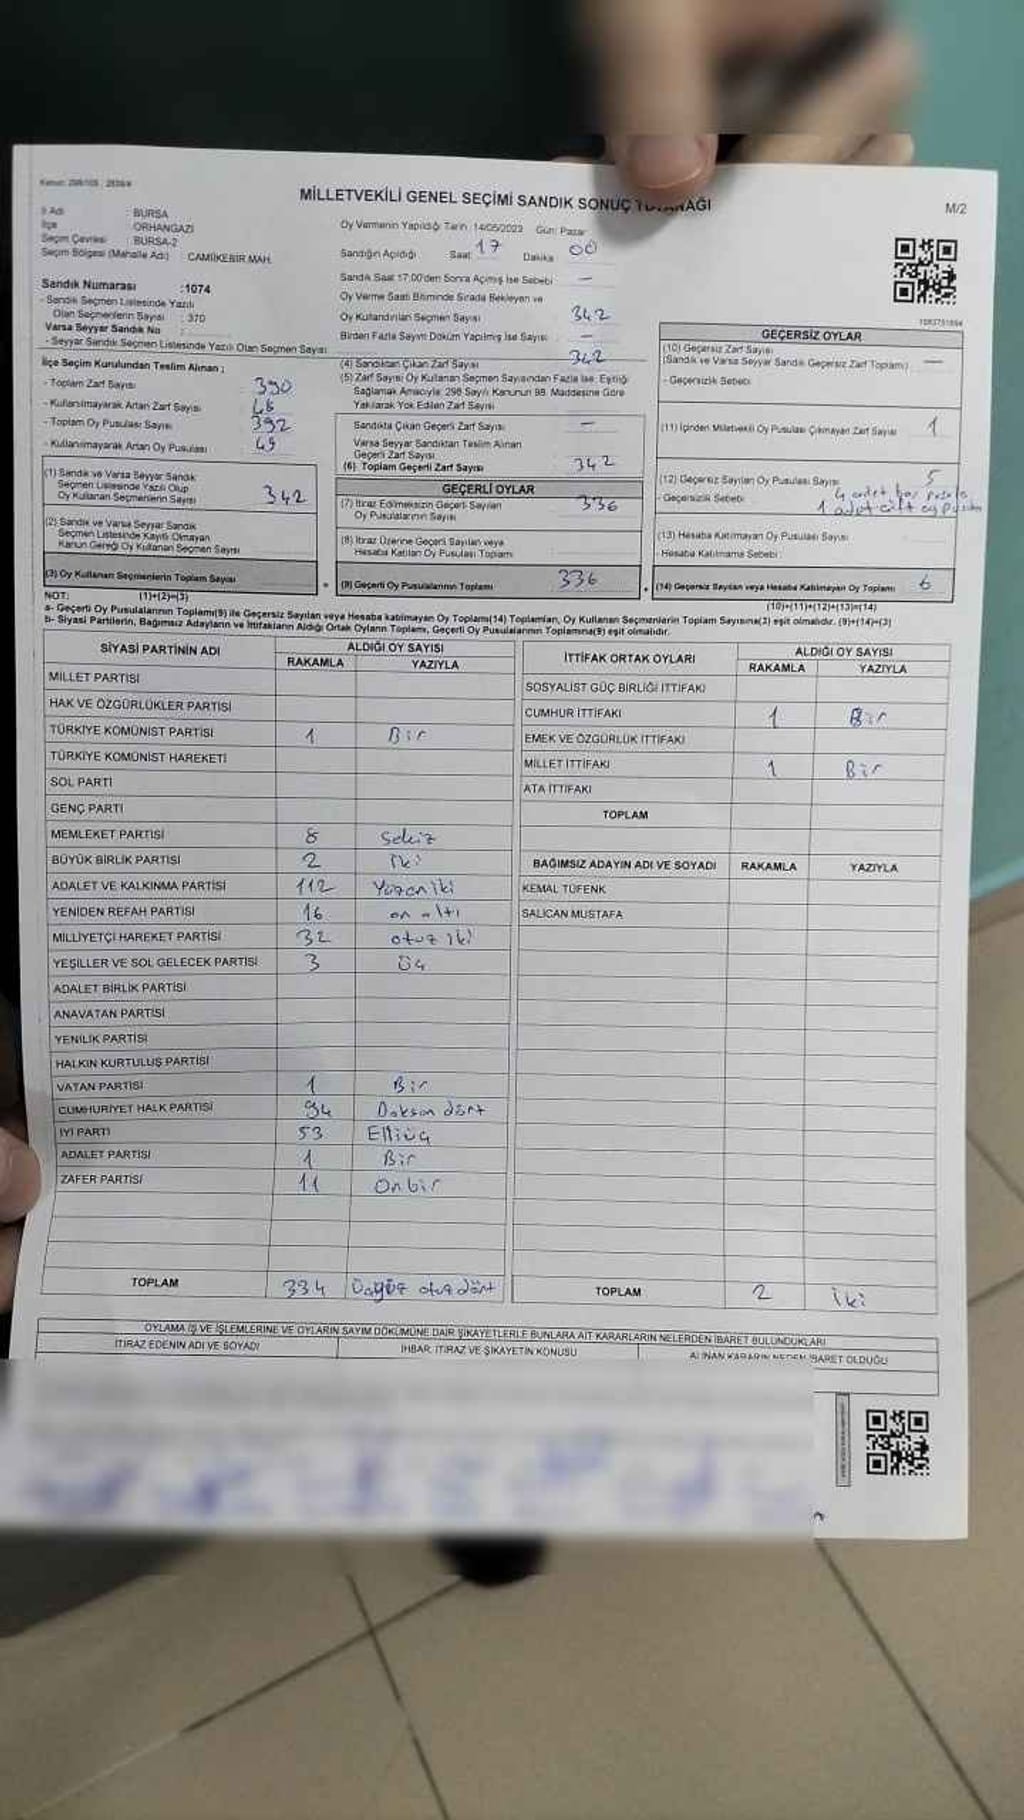 Kanun: 298/105 - 2839/4
MİLLETVEKİLİ GENEL SEÇİMİ SANDIK SONUÇ
M/2
İl Adı : BURSA
İlçe : ORHANGAZİ
Seçim Çevresi : BURSA-2
Seçim Bölgesi (Mahalle Adı) : CAMİİKEBİR MAH.
Oy Vermenin Yapıldığı Tarih : 14/05/2023 Gün: Pazar
Sandığın Açıldığı Saat : 17 Dakika : 00
Sandık Saat 17:00'den Sonra Açılmış İse Sebebi : —
Oy Verme Saati Bitiminde Sırada Bekleyen ve
Oy Kullandırılan Seçmen Sayısı : 342
Birden Fazla Sayım Döküm Yapılmış İse Sayısı : —
Sandık Numarası :1074
- Sandık Seçmen Listesinde Yazılı
Olan Seçmenlerin Sayısı : 370
Varsa Seyyar Sandık No :
- Seyyar Sandık Seçmen Listesinde Yazılı Olan Seçmen Sayısı
İlçe Seçim Kurulundan Teslim Alınan ;
- Toplam Zarf Sayısı : 390
- Kullanılmayarak Artan Zarf Sayısı : 48
- Toplam Oy Pusulası Sayısı : 392
- Kullanılmayarak Artan Oy Pusulası : 49
(1) Sandık ve Varsa Seyyar Sandık
Seçmen Listesinde Yazılı Olup
Oy Kullanan Seçmenlerin Sayısı : 342
(2) Sandık ve Varsa Seyyar Sandık
Seçmen Listesinde Kayıtlı Olmayan
Kanun Gereği Oy Kullanan Seçmen Sayısı
(3) Oy Kullanan Seçmenlerin Toplam Sayısı
(4) Sandıktan Çıkan Zarf Sayısı : 342
(5) Zarf Sayısı Oy Kullanan Seçmen Sayısından Fazla İse, Eşitliği
Sağlamak Amacıyla; 298 Sayılı Kanunun 98. Maddesine Göre
Yakılarak Yok Edilen Zarf Sayısı
Sandıkta Çıkan Geçerli Zarf Sayısı : —
Varsa Seyyar Sandıktan Teslim Alınan
Geçerli Zarf Sayısı :
(6) Toplam Geçerli Zarf Sayısı : 342
GEÇERLİ OYLAR
(7) İtiraz Edilmeksizin Geçerli Sayılan
Oy Pusulalarının Sayısı : 336
(8) İtiraz Üzerine Geçerli Sayılan veya
Hesaba Katılan Oy Pusulası Toplamı :
(9) Geçerli Oy Pusulalarının Toplamı : 336
GEÇERSİZ OYLAR
(10) Geçersiz Zarf Sayısı
(Sandık ve Varsa Seyyar Sandık Geçersiz Zarf Toplamı) : —
- Geçersizlik Sebebi :
(11) İçinden Milletvekili Oy Pusulası Çıkmayan Zarf Sayısı : 1
(12) Geçersiz Sayılan Oy Pusulası Sayısı : 5
- Geçersizlik Sebebi : 4 adet boş pusula
1 adet çift oy pusula
(13) Hesaba Katılmayan Oy Pusulası Sayısı :
- Hesaba Katılmama Sebebi :
(14) Geçersiz Sayılan veya Hesaba Katılmayan Oy Toplamı : 6
NOT: (1)+(2)=(3)
(10)+(11)+(12)+(13)=(14)
a- Geçerli Oy Pusulalarının Toplamı(9) ile Geçersiz Sayılan veya Hesaba katılmayan Oy Toplamı(14) Toplamları, Oy Kullanan Seçmenlerin Toplam Sayısına(3) eşit olmalıdır. (9)+(14)=(3)
b- Siyasi Partilerin, Bağımsız Adayların ve İttifakların Aldığı Ortak Oyların Toplamı, Geçerli Oy Pusulalarının Toplamına(9) eşit olmalıdır.
SİYASİ PARTİNİN ADI ALDIĞI OY SAYISI
RAKAMLA YAZIYLA
MİLLET PARTİSİ
HAK VE ÖZGÜRLÜKLER PARTİSİ
TÜRKİYE KOMÜNİST PARTİSİ 1 Bir
TÜRKİYE KOMÜNİST HAREKETİ
SOL PARTİ
GENÇ PARTİ
MEMLEKET PARTİSİ 8 Sekiz
BÜYÜK BİRLİK PARTİSİ 2 İki
ADALET VE KALKINMA PARTİSİ 112 Yüzoniki
YENİDEN REFAH PARTİSİ 16 on altı
MİLLİYETÇİ HAREKET PARTİSİ 32 otuz iki
YEŞİLLER VE SOL GELECEK PARTİSİ 3 Üç
ADALET BİRLİK PARTİSİ
ANAVATAN PARTİSİ
YENİLİK PARTİSİ
HALKIN KURTULUŞ PARTİSİ
VATAN PARTİSİ 1 Bir
CUMHURİYET HALK PARTİSİ 94 Doksan dört
İYİ PARTİ 53 Elliüç
ADALET PARTİSİ 1 Bir
ZAFER PARTİSİ 11 Onbir
TOPLAM 334 Üçyüz otuz dört
İTTİFAK ORTAK OYLARI ALDIĞI OY SAYISI
RAKAMLA YAZIYLA
SOSYALİST GÜÇ BİRLİĞİ İTTİFAKI
CUMHUR İTTİFAKI 1 Bir
EMEK VE ÖZGÜRLÜK İTTİFAKI
MİLLET İTTİFAKI 1 Bir
ATA İTTİFAKI
TOPLAM
BAĞIMSIZ ADAYIN ADI VE SOYADI RAKAMLA YAZIYLA
KEMAL TÜFENK
SALİCAN MUSTAFA
TOPLAM 2 İki
OYLAMA İŞ VE İŞLEMLERİNE VE OYLARIN SAYIM DÖKÜMÜNE DAİR ŞİKAYETLERLE BUNLARA AİT KARARLARIN NELERDEN İBARET BULUNDUKLARI
İTİRAZ EDENİN ADI VE SOYADI İHBAR, İTİRAZ VE ŞİKAYETİN KONUSU ALINAN KARARIN NEDEN İBARET OLDUĞU